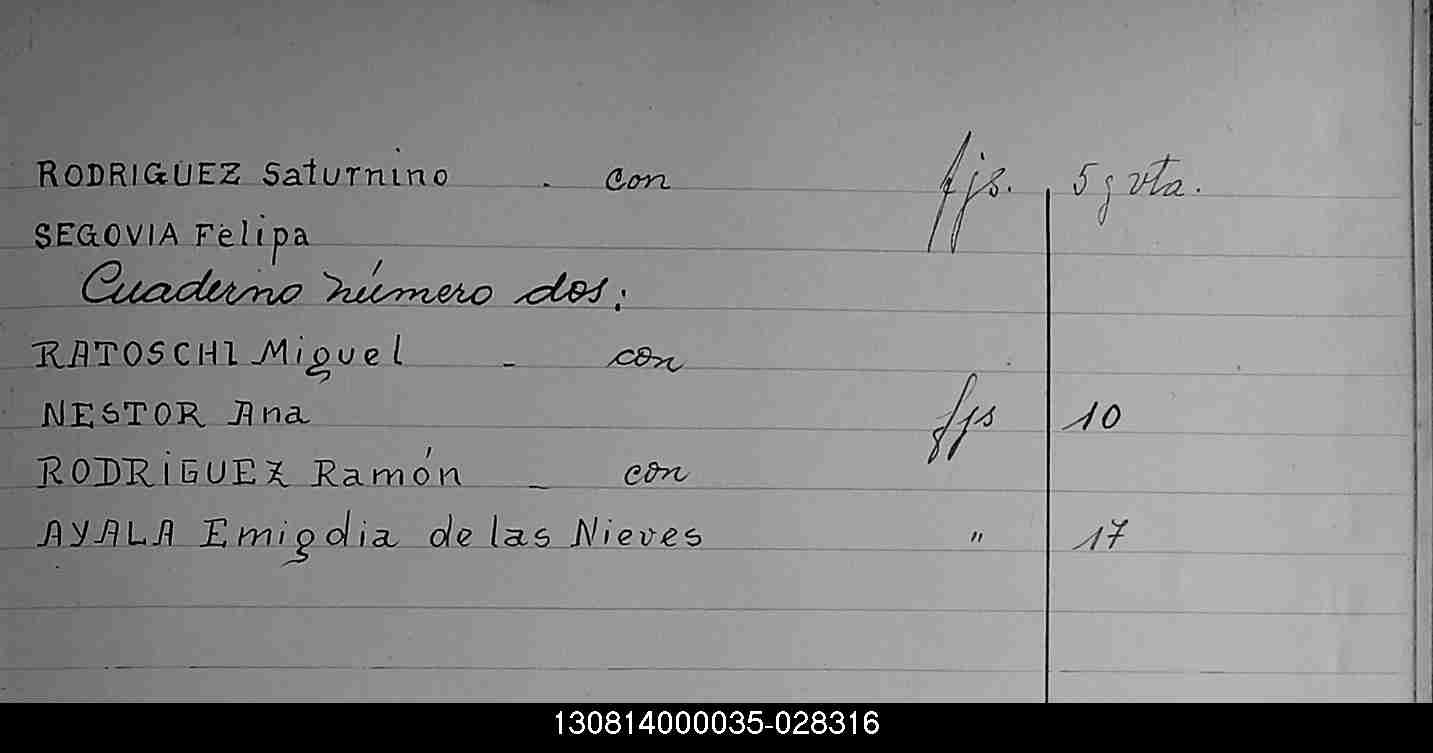 RODRIGUEZ Saturnino . con fjs. 5 y vta.
SEGOVIA Felipa
Cuaderno número dos:
RATOSCHI Miguel - con
NESTOR Ana fjs 10
RODRIGUEZ Ramón - con
AYALA Emigdia de las Nieves " 17
130814000035-028316